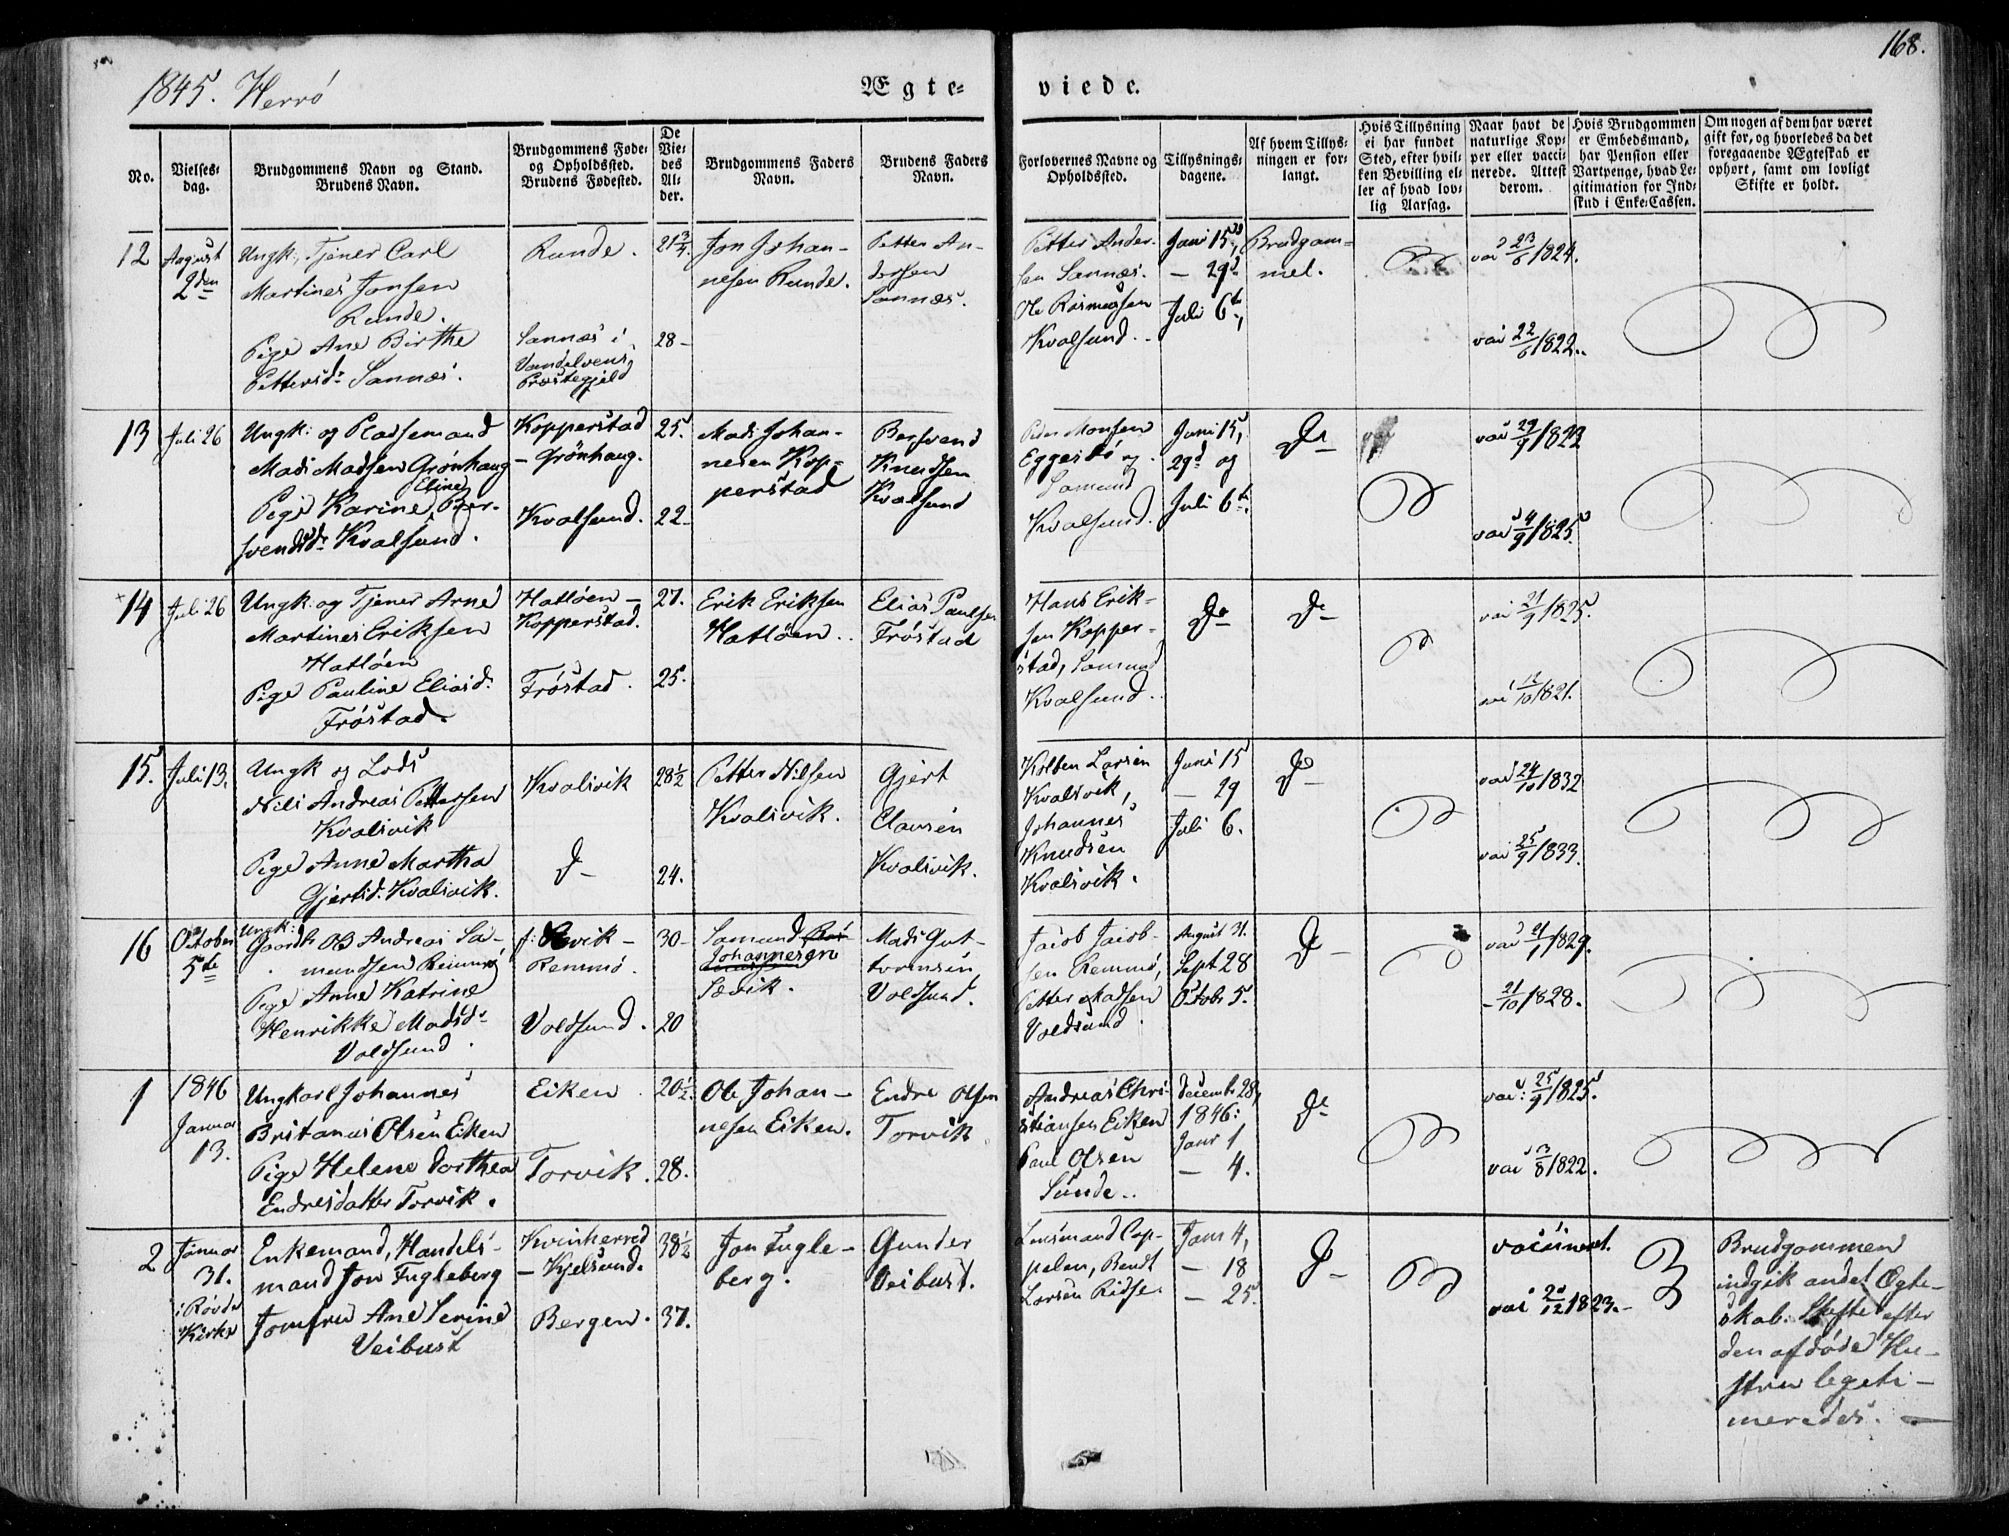 168.
1845. Herrö
Ægte= viede.
No.
Vielses=
dag.
Brudgommens Navn og Stand.
Brudens Navn.
Brudgommens Føde=
og Opholdssted.
Brudens Fødested.
De
Vie=
des
Al=
der.
Brudgommens Faders
Navn.
Brudens Faders
Navn.
Forlovernes Navne og
Opholdssted.
Tillysnings=
dagene.
Af hvem Tillys=
ningen er for=
langt.
Hvis Tillysning
ei har fundet
Sted, efter hvil=
ken Bevilling el=
ler af hvad lov=
lig Aarsag.
Naar havt de
naturlige Kop=
per eller vacci=
nerede. Attest
derom.
Hvis Brudgommen
er Embedsmand,
har Pension eller
Vartpenge, hvad Le=
gitimation for Ind=
skud i Enke=Cassen.
Om nogen af dem har været
gift før, og hvorledes da det
foregaaende Ægteskab er
ophørt, samt om lovligt
Skifte er holdt.
12
August
2den
Ungk: Tjener Carl
Martines Jonsen
Runde.
Pige Ane Birthe
Pettersdr Sannæs.
Runde.
Sannæs i
Vandelvens
Præstegjeld
21 3/4
28
Jon Johan-
nesen Runde.
Petter An-
dersen
Sannæs.
Petter Ander-
sen Sannæs.
Ole Rasmussen
Kvalsund.
Juni 15,
- 29d
Juli 6te
Brudgom-
met.
vac 23/6 1824.
vac 22/6 1822.
13
Juli 26
Ungk: og Pladsemand
Mads Madsen Grönhaug
Eline
Pige Karine Ber-
svendsdr Kvalsund.
Kopperstad
- Grönhaug.
Kvalsund.
25.
22
Mads Johan-
nesen Kop-
perstad
Bersvend
Knudsen
Kvalsund
Peder Monsen
Eggesbö og
Samund
Kvalsund.
Juni 15,
29d og
Juli 6te
Do
vac 29/9 1822
vac 4/9 1825.
14
Juli 26
Ungk: og Tjener Arne
Martines Eriksen
Hatlöen
Pige Pauline Eliasdr
Fröstad.
Hatlöen -
Kopperstad.
Fröstad.
27.
25.
Erik Eriksen
Hatlöen.
Elias Paulsen
Fröstad
Hans Erik-
sen Kopper-
stad, Samund
Kvalsund.
Do
Do
vac 21/9 1825.
vac 12/10 1821.
15.
Juli 13,
Ungk og Lods
Nils Andreas Pettersen
Kvalsvik
Pige Anne Martha
Gjertsd. Kvalsvik.
Kvalsvik
Do
28 1/2
24.
Petter Nilsen
Kvalsvik.
Gjert
Clausen
Kvalsvik.
Kolben Larsen
Kvalsvik,
Johannes
Knudsen
Kvalsvik.
Juni 15
- 29
Juli 6.
Do
vac 24/10 1832
vac 25/9 1833.
16
October
5te
Ungk:
Gaardb Ole Andreas Sa-
mundsen Remmö
Pige Anne Katrine
Henrikke Madsdr
Voldsund.
Remmö.
Voldsund.
30
20
Samund
Johannesen
Sævik.
Mads Gut-
tormsen
Voldsund.
Jacob Jacob-
sen Remmö,
Petter Madsen
Voldsund.
August 31.
Sept 28
Octobr 5.
Do
vac 21/1 1829.
- 21/10 1828.
1
1846
Januar
13.
Ungkarl Johannes
Britanus Olsen Eiken
Pige Helene Dorthea
Endresdatter Torvik.
Eiken
Torvik.
20 1/2
28.
Ole Johan-
nesen Eiken.
Endre Olsen
Torvik
Andreas Chri-
stiansen Eiken
Paul Olsen
Sunde.
Decemb. 28,
1846:
Janr 1
- 4.
Do
vac: 25/9 1825.
vac 3/8 1822.
2
Januar
31.
i Røvde
Kirke
Enkemand, Handels-
mand Jon Fugleberg
Jomfru Ane Serine
Veibust
Kvinherred
- Kjelsund.
Bergen.
38 1/2
37.
Jon Fugle-
berg.
Gunder
Veibust.
Lensmand Cop-
pelen, Bendt
Larsen Ridse.
Janr 4,
- 18
- 25.
Do
vaccineret.
vac 20/12 1823.
Brudgommen
indgik andet Ægte-
skab. Skifte efter
den afdöde Hu-
stru legeti-
meredes.